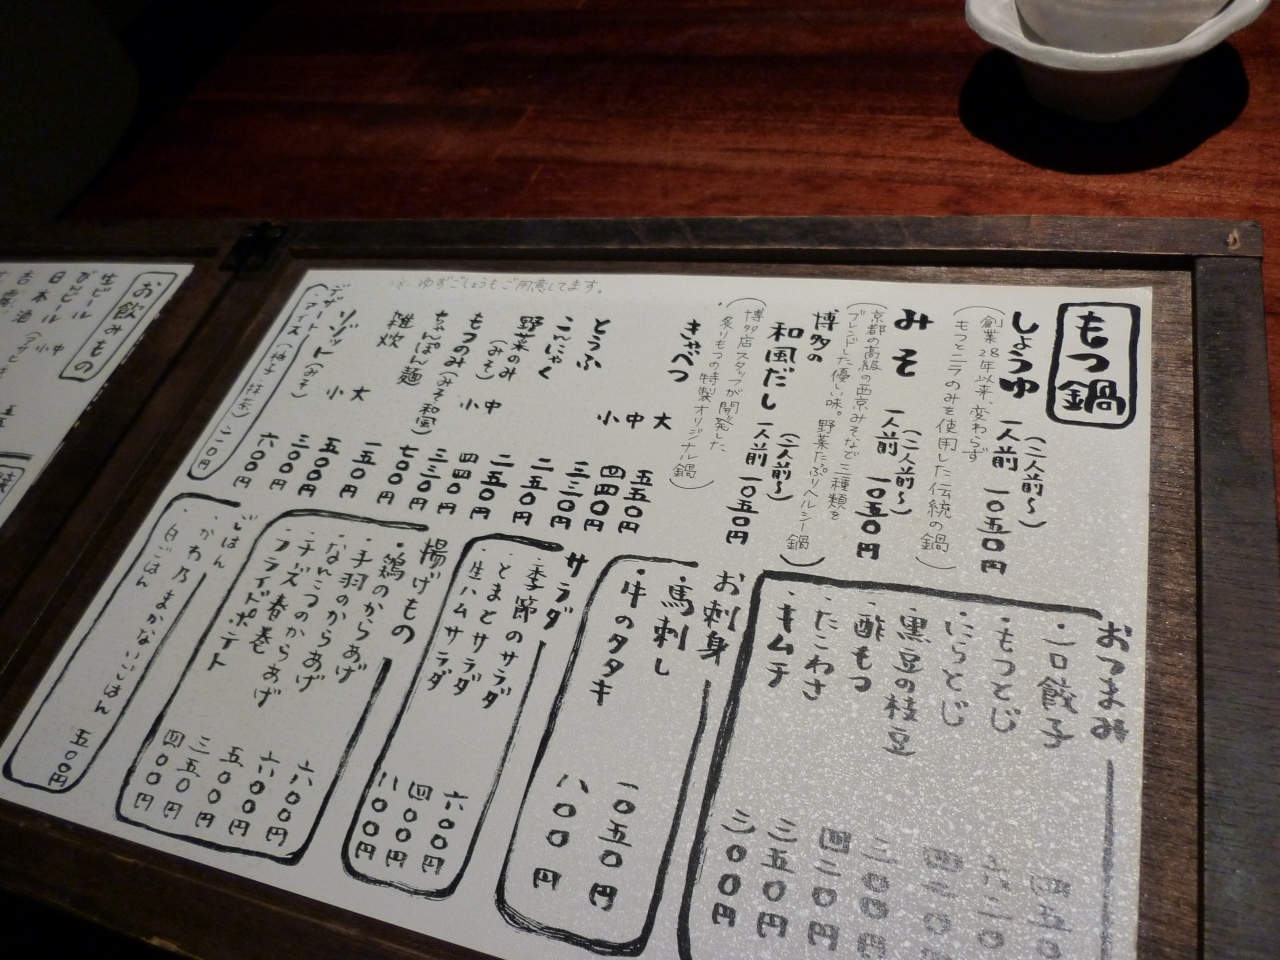 もつ鍋
しょうゆ 一人前 (二人前〜) 一〇五〇円
(創業28年以来、変わらず
もつとニラのみを使用した伝統の鍋)
みそ 一人前 (二人前〜) 一〇五〇円
(京都の高級の西京みそなど三種類を
ブレンドした優しい味。野菜たっぷりヘルシー鍋)
博多の
和風だし 一人前 (二人前〜) 一〇五〇円
(博多店スタッフが開発した
炙りもつの特製オリジナル鍋)
きゃべつ 大 五五〇円
中 四四〇円
小 三三〇円
とうふ 二五〇円
こんにゃく 二五〇円
野菜のみ
(みそ) 中 四四〇円
もつのみ(みそ・和風) 小 三三〇円
ちゃんぽん麺
雑炊
リゾット(みそ) 大
小
七〇〇円
一五〇円
五〇〇円
三〇〇円
六〇〇円
デザート
・アイス(柚子・抹茶)二〇〇円
※ゆずごしょうもご用意してます。
おつまみ
・一口餃子 四五〇
・もつとじ 二〇
・にらとじ 四二〇
・黒豆の枝豆 三〇〇円
・酢もつ 四二〇円
・たこわさ 三五〇円
・キムチ 三〇〇円
お刺身
・馬刺し 一〇五〇円
・牛のタタキ 八〇〇円
サラダ
・季節のサラダ 六〇〇円
・とまとサラダ 四〇〇円
・生ハムサラダ 八〇〇円
揚げもの
・鶏のからあげ 六〇〇円
・手羽のからあげ 六〇〇円
・なんこつのからあげ 五〇〇円
・チーズ春巻 三五〇円
・フライドポテト 四〇〇円
ごはん
・かわ乃 まかないごはん 五〇〇円
・白ごはん
お飲みもの
生ビール
びんビール 中
日本酒 小